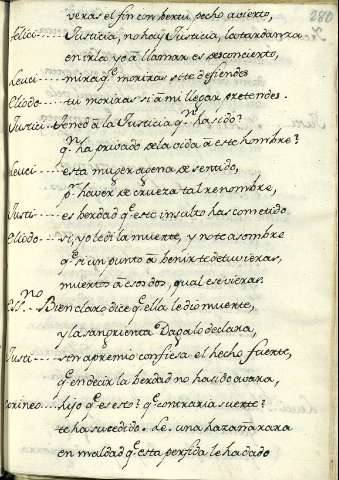 280
veras el fin con berttu pecho avierto,
felicio.... Justicia, no hay Justicia, la tardanza
en irla yo a llamar es desconcierto,
Leuci.... mira q̃ moriras si te defiendes
Eliodo.... tu moriras si a mi llegar pretendes.
Justici.. Tened a la Justicia q̃ ha sido?
q.n ha privado de la vida a este hombre?
Leuci.... esta muger agena de sentido,
p.r haver de crueza tal renombre,
Justi.... es berdad q̃ este insulto has cometido
Eliodo... si, yo le di la muerte, y no te asombre
q̃ si un punto a benir te detuvieras,
muertos a esos dos, qual ese vieras.
ess.no Bien claro dice q̃ ella le dio muerte,
y la sangrienta Daga lo declara,
Justi.... sin apremio confiesa el hecho fuerte,
q̃ en decir la berdad no ha sido avara,
corineo... hijo q̃ es esto? q̃ contraria suerte?
te ha sucedido. Le. una hazaña rara
en maldad q̃ esta perfida le ha dado